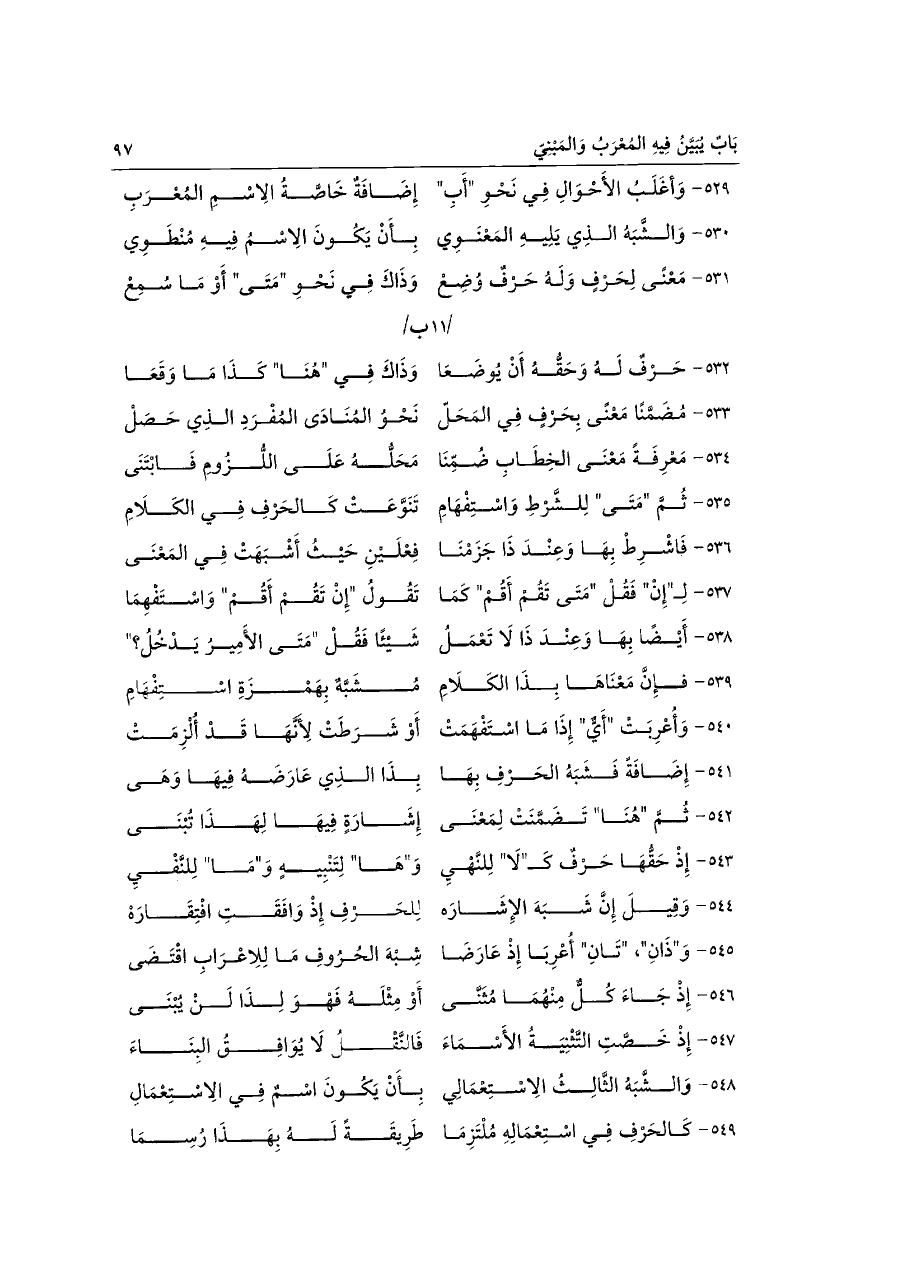 بَابٌ يُبَيَّنُ فِيهِ المُعْرَبُ وَالمَبْنِيّ ٩٧
٥٢٩- وَأَغْلَبُ الأَحْوَالِ فِي نَحْوِ "أَبِ" إِضَافَةٌ خَاصَّةُ الِاسْمِ المُعْرَبِ
٥٣٠- وَالشَّبَهُ الذِي يَلِيهِ المَعْنَوِي بِأَنْ يَكُونَ الِاسْمُ فِيهِ مُنْطَوِي
٥٣١- مَعْنًى لِحَرْفٍ وَلَهُ حَرْفٌ وُضِعْ وَذَاكَ فِي نَحْوِ "مَتَى" أَوْ مَا سُمِعْ
/١١ب/
٥٣٢- حَرْفٌ لَهُ وَحَقُّهُ أَنْ يُوضَعَا وَذَاكَ فِي "هُنَا" كَذَا مَا وَقَعَا
٥٣٣- مُضَمَّنًا مَعْنًى بِحَرْفٍ فِي المَحَلّ نَحْوُ المُنَادَى المُفْرَدِ الذِي حَصَلْ
٥٣٤- مَعْرِفَةً مَعْنَى الخِطَابِ ضُمِّنَا مَحَلُّهُ عَلَى اللُّزُومِ فَابْتَنَى
٥٣٥- ثُمَّ "مَتَى" لِلشَّرْطِ وَاسْتِفْهَامِ تَنَوَّعَتْ كَالحَرْفِ فِي الكَلَامِ
٥٣٦- فَاشْرِطْ بِهَا وَعِنْدَ ذَا جَزَمْنَا فِعْلَيْنِ حَيْثُ أَشْبَهَتْ فِي المَعْنَى
٥٣٧- لِـ"إِنْ" فَقُلْ "مَتَى تَقُمْ أَقُمْ" كَمَا تَقُولُ "إِنْ تَقُمْ أَقُمْ" وَاسْتَفْهِمَا
٥٣٨- أَيْضًا بِهَا وَعِنْدَ ذَا لَا تَعْمَلُ شَيْئًا فَقُلْ "مَتَى الأَمِيرُ يَدْخُلُ؟"
٥٣٩- فَإِنَّ مَعْنَاهَا بِذَا الكَلَامِ مُشَبَّهٌ بِهَمْزَةِ اسْتِفْهَامِ
٥٤٠- وَأُعْرِبَتْ "أَيٌّ" إِذَا مَا اسْتَفْهَمَتْ أَوْ شَرَطَتْ لِأَنَّهَا قَدْ أُلْزِمَتْ
٥٤١- إِضَافَةً فَشَبَهُ الحَرْفِ بِهَا بِذَا الذِي عَارَضَهُ فِيهَا وَهَى
٥٤٢- ثُمَّ "هُنَا" تَضَمَّنَتْ لِمَعْنَى إِشَارَةٍ فِيهَا لِهَذَا تُبْنَى
٥٤٣- إِذْ حَقُّهَا حَرْفٌ كَـ"لَا" لِلنَّهْيِ وَ"هَا" لِتَنْبِيهٍ وَ"مَا" لِلنَّفْيِ
٥٤٤- وَقِيلَ إِنَّ شَبَهَ الإِشَارَه لِلحَرْفِ إِذْ وَافَقَتِ افْتِقَارَهْ
٥٤٥- وَ"ذَانِ"، "تَانِ" أُعْرِبَا إِذْ عَارَضَا شِبْهَ الحُرُوفِ مَا لِلِاعْرَابِ اقْتَضَى
٥٤٦- إِذْ جَاءَ كُلٌّ مِنْهُمَا مُثَنَّى أَوْ مِثْلَهُ فَهْوَ لِذَا لَنْ يُبْنَى
٥٤٧- إِذْ خَصَّتِ التَّثْنِيَةُ الأَسْمَاءَ فَالنَّقْلُ لَا يُوَافِقُ البِنَاءَ
٥٤٨- وَالشَّبَهُ الثَّالِثُ الِاسْتِعْمَالِي بِأَنْ يَكُونَ اسْمٌ فِي الِاسْتِعْمَالِ
٥٤٩- كَالحَرْفِ فِي اسْتِعْمَالِهِ مُلْتَزِمَا طَرِيقَةً لَهُ بِهَذَا رُسِمَا